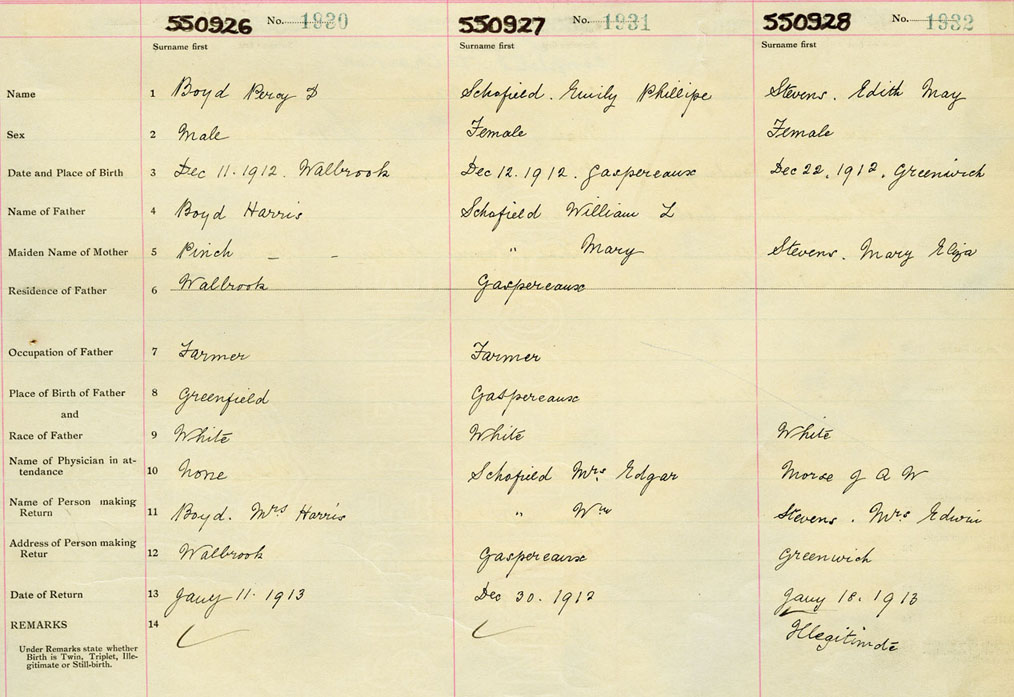 550926 No. 1930 550927 No. 1931 550928 No. 1932
Surname first Surname first Surname first
Name 1 Boyd Percy D Schofield. Emily Phillipe Stevens. Edith May
Sex 2 Male Female Female
Date and Place of Birth 3 Dec 11. 1912. Walbrook Dec 12. 1912. Gaspereaux Dec 22, 1912, Greenwich
Name of Father 4 Boyd Harris Schofield William L
Maiden Name of Mother 5 Pinch – – " Mary Stevens. Mary Eliza
Residence of Father 6 Walbrook Gaspereaux
Occupation of Father 7 Farmer Farmer
Place of Birth of Father 8 Greenfield Gaspereaux
and
Race of Father 9 White White White
Name of Physician in at-
tendance 10 None Schofield Mrs. Edgar Morse G A W
Name of Person making
Return 11 Boyd. Mrs Harris " Wm Stevens. Mrs Edwin
Address of Person making
Retur 12 Walbrook Gaspereaux Greenwich
Date of Return 13 Jany 11. 1913 Dec 30. 1912 Jany 18. 1913
REMARKS 14 Illegitimate
Under Remarks state whether
Birth is Twin, Triplet, Ille-
gitimate or Still-birth.